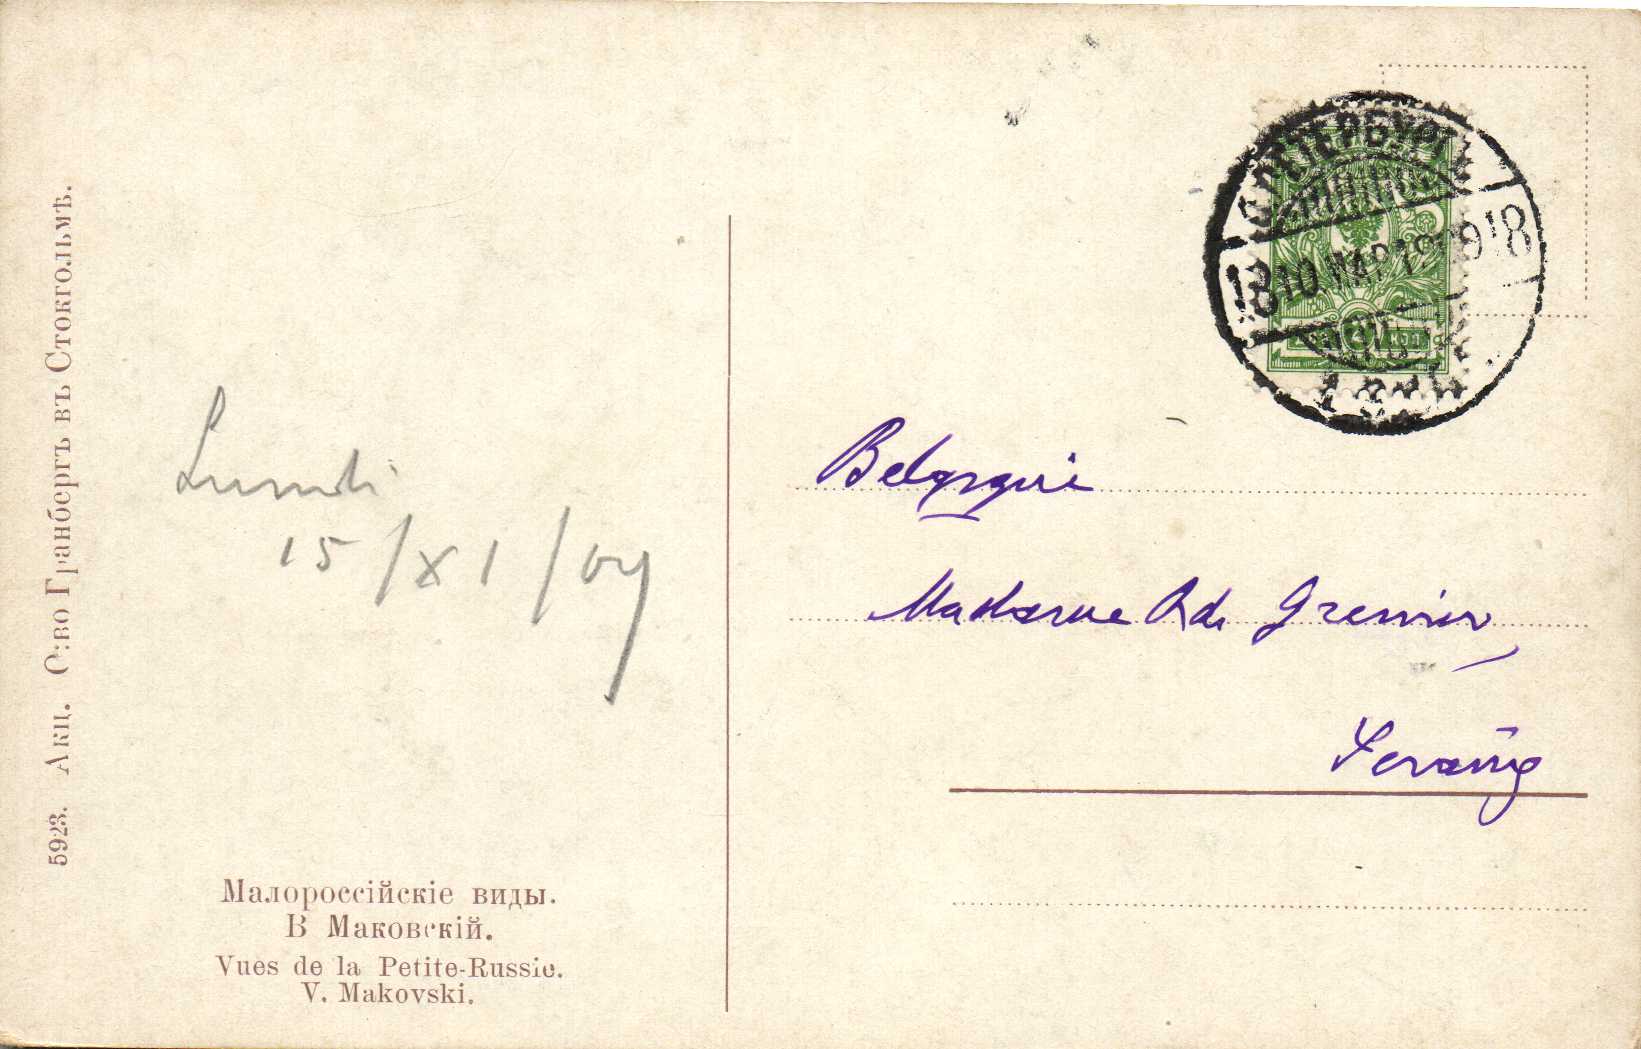 С.ПЕТЕРБУРГЪ
1810.МАР.1909 18
5923. Акц. О-во Гранбергъ въ Стокгольмѣ.
Lundi
15/XI/09
Belgique
Madame Ad. Grenier,
Seraing
Малороссійскіе виды.
В Маковскій.
Vues de la Petite-Russie.
V. Makovski.